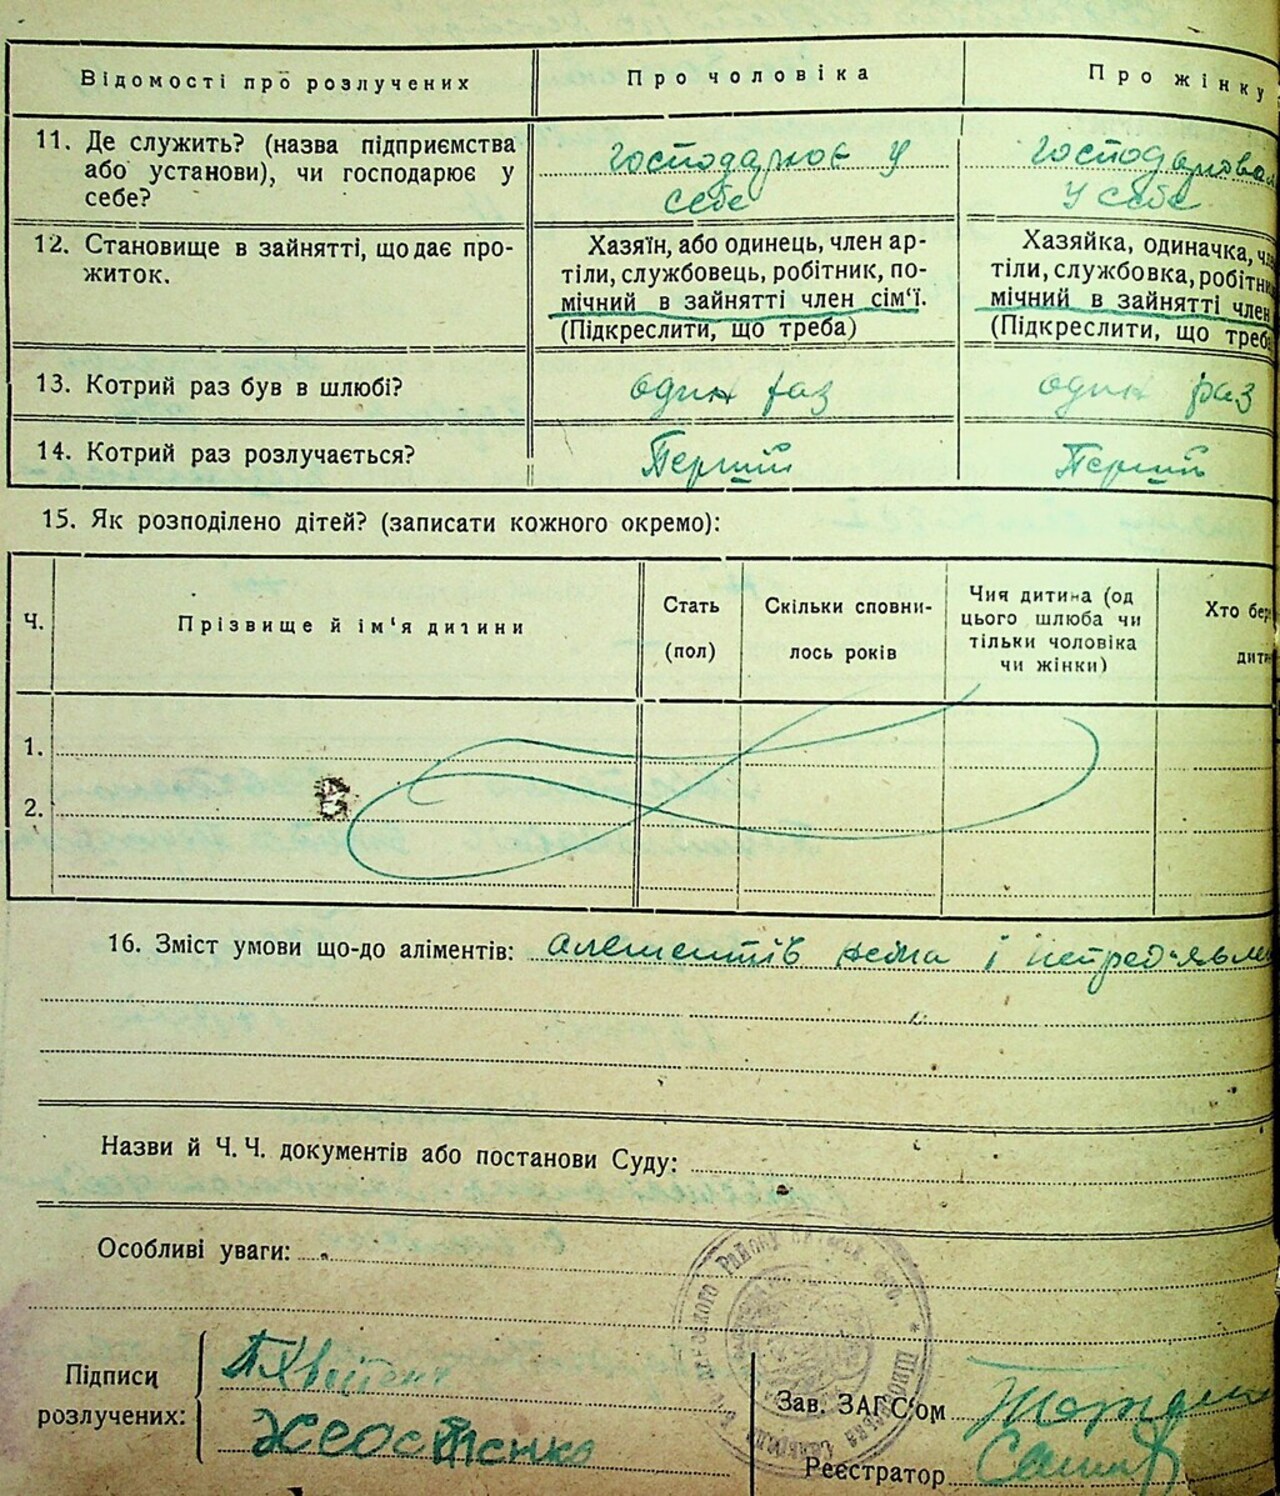 Відомості про розлучених
Про чоловіка
Про жінку
11. Де служить? (назва підприємства
або установи), чи господарює у
себе?
господарює у
себе
господарювала
у себе
12. Становище в зайнятті, що дає про-
житок.
Хазяїн, або одинець, член ар-
тіли, службовець, робітник, по-
мічний в зайнятті член сім‘ї.
(Підкреслити, що треба)
Хазяйка, одиначка, чл
тіли, службовка, робітни
мічний в зайнятті член
(Підкреслити, що треба
13. Котрий раз був в шлюбі?
один раз
один раз
14. Котрий раз розлучається?
Перший
Перший
15. Як розподілено дітей? (записати кожного окремо):
Ч.
Прізвище й ім'я дитини
Стать
(пол)
Скільки сповни-
лось років
Чия дитина (од
цього шлюба чи
тільки чоловіка
чи жінки)
Хто бере
дити
1.
2.
16. Зміст умови що-до аліментів: алементів нема і непред'явле
Назви й Ч. Ч. документів або постанови Суду:
Особливі уваги:
Району
Підписи
розлучених:
Зав. ЗАГС‘ом
Реєстратор